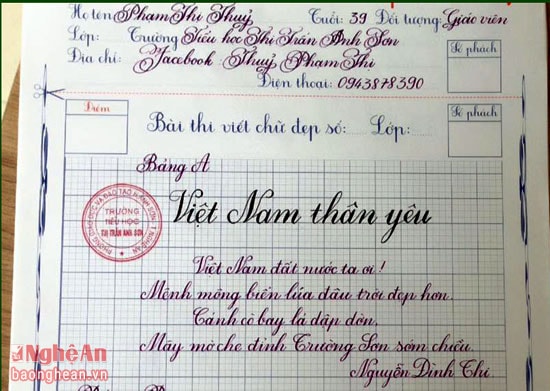 Họ tên Phạm Thị Thuỷ Tuổi: 39 Đối tượng: Giáo viên
Lớp: Trường Tiểu học Thị Trấn Anh Sơn
Địa chỉ: Facebook Thuỷ Phạm Thi
Điện thoại: 0943878390
Số phách
Điểm
Số phách
Bài thi viết chữ đẹp số: Lớp:
Bảng A
TRƯỜNG
TIỂU HỌC
THỊ TRẤN ANH SƠN
Việt Nam thân yêu
Việt Nam đất nước ta ơi!
Mênh mông biển lúa đâu trời đẹp hơn.
Cánh cò bay lả dập dờn,
Mây mờ che đỉnh Trường Sơn sớm chiều.
Nguyễn Đình Thi
Nghệ An
baonghean.vn